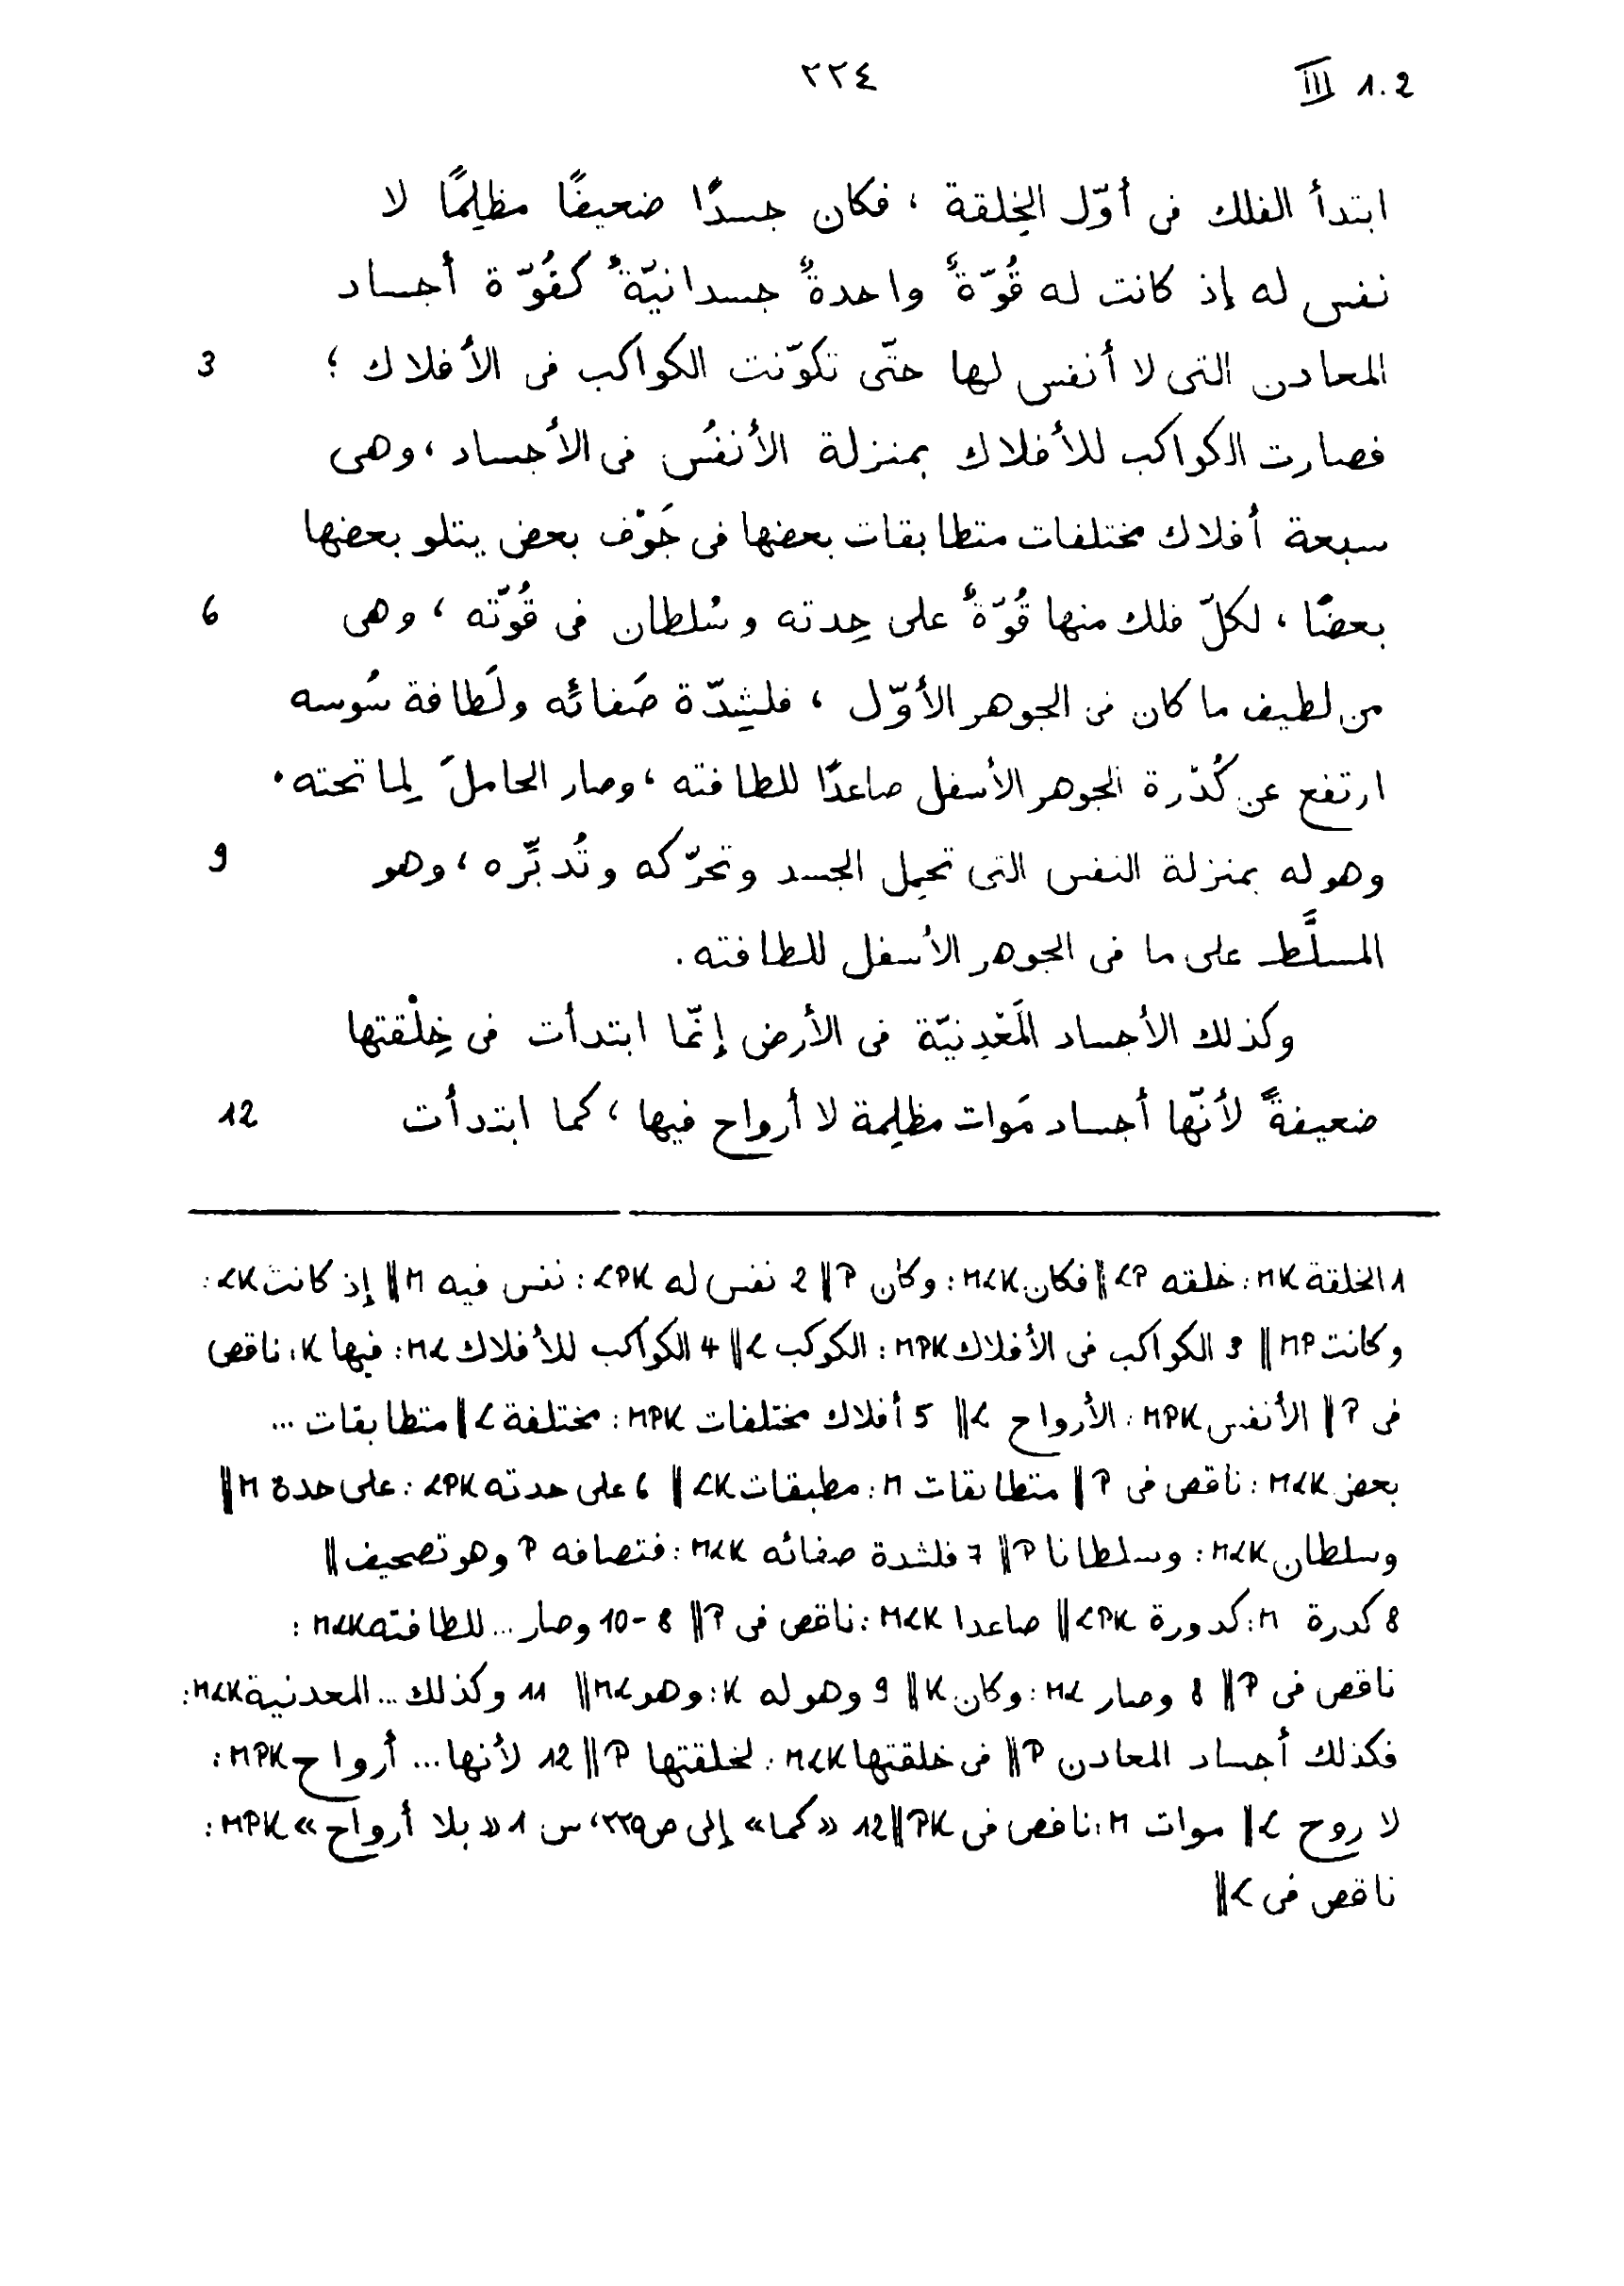 ٢٢٤
III 1.2
ابتدأ الفلك فى أوّل الخِلقة ، فكان جسدًا ضعيفًا مظلِمًا لا
نفس له إذ كانت له قُوّةٌ واحدةٌ جسدانيّةٌ كقُوّة أجساد
المعادن التى لا أنفس لها حتّى تكوّنت الكواكب فى الأفلاك ؛ 3
فصارت الكواكب للأفلاك بمنزلة الأنفُس فى الأجساد ، وهى
سبعة أفلاك مختلفات متطابقات بعضها فى جَوْف بعض يتلو بعضها
بعضًا ، لكلّ فلك منها قُوّةٌ على حِدته وسُلطان فى قُوّته ، وهى 6
من لطيف ما كان فى الجوهر الأوّل ، فلشِدّة صَفائه ولَطافة سُوسه
ارتفع عن كُدْرة الجوهر الأسفل صاعدًا للطافته ، وصار الحاملَ لِما تحته .
وهو له بمنزلة النفس التى تحمِل الجسد وتحرّكه وتُدبِّره ، وهو 9
المسلَّط على ما فى الجوهر الأسفل للطافته .
وكذلك الأجساد المَعْدِنيّة فى الأرض إنّما ابتدأت فى خِلْقتها
ضعيفةً لأنّها أجساد مَوات مظلِمة لا أرواح فيها ، كما ابتدأت 12
1 الخلقة MK : خلقه LP || فكان MLK : وكان P || 2 نفس له LPK : نفس فيه M || إذ كانت LK :
وكانت MP || 3 الكواكب فى الأفلاك MPK : الكوكب L || 4 الكواكب للأفلاك ML : فيها K ، ناقص
فى P || الأنفس MPK : الأرواح L || 5 أفلاك مختلفات MPK : مختلفة L || متطابقات ...
بعض MLK : ناقص فى P || متطابقات M : مطبقات LK || 6 على حدته LPK : على حدة M ||
وسلطان MLK : وسلطانا P || 7 فلشدة صفائه MLK : فتصافه P وهو تصحيف ||
8 كدرة M : كدورة LPK || صاعدا MLK : ناقص فى P || 8-10 وصار ... للطافته MLK :
ناقص فى P || 8 وصار ML : وكان K || 9 وهو له K : وهو ML || 11 وكذلك ... المعدنية MLK :
فكذلك أجساد المعادن P || فى خلقتها MLK : لخلقتها P || 12 لأنها ... أرواح MPK :
لا روح L || موات M : ناقص فى PK || 12 «كما» إلى ص ٢٢٥ ، س 1 «بلا أرواح» MPK :
ناقص فى L ||